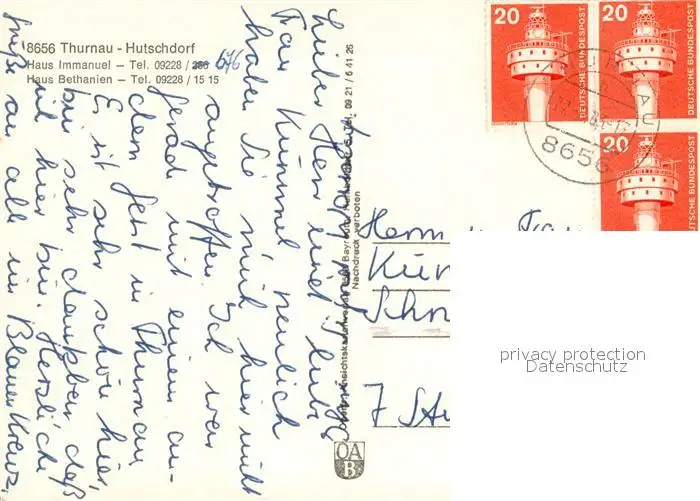 8656 Thurnau - Hutschdorf
Haus Immanuel – Tel. 09228 / 286 676
Haus Bethanien – Tel. 09228 / 15 15
Lieber Herr und liebe
Frau Kümmel neulich
haben Sie mich hier nicht
angetroffen. Ich war
gerad mit einem an-
dern jetzt in Thurnau.
Es ist sehr schön hier,
bin sehr dankbar, daß
ich hier bin. Herzliche
Grüße an all im Blauen Kreuz,
Tel. 09 21 / 6 41 26
Nachdruck verboten
OA
B
20
DEUTSCHE BUNDESPOST
20
DEUTSCHE BUNDESPOST
20
DEUTSCHE BUNDESPOST
8656
Herrn u. Frau
Küm
Schn
7 Stu
privacy protection
Datenschutz